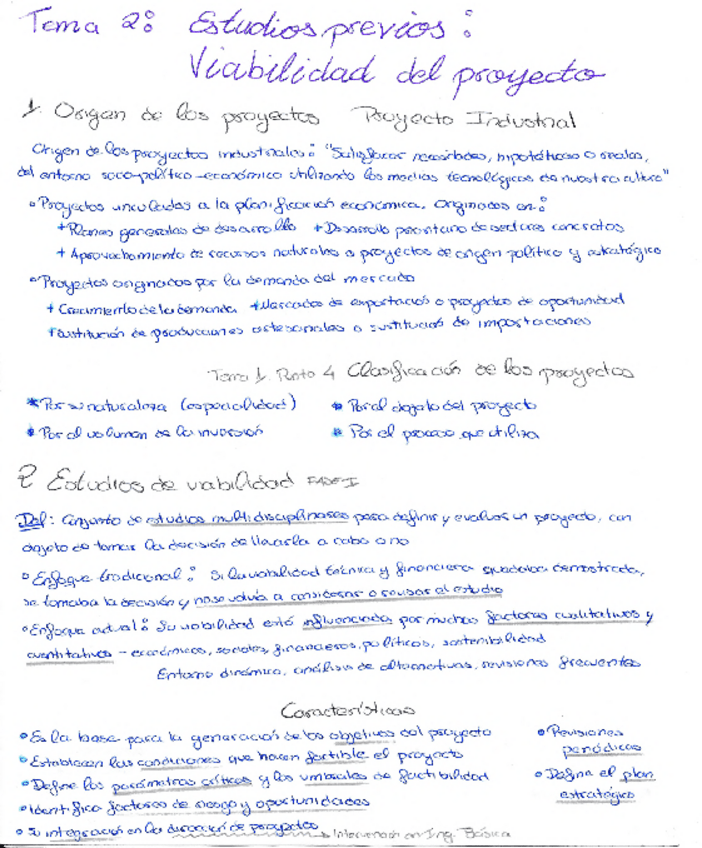 Tema 2: Estudios previos:
Viabilidad del proyecto
1. Origen de los proyectos Proyecto Industrial
Origen de los proyectos industriales: "Satisfacer necesidades, hipotéticas o reales,
del entorno socio-político-económico utilizando los medios tecnológicos de nuestra cultura"
• Proyectos vinculados a la planificación económica. Originados en:
+ Planes generales de desarrollo + Desarrollo prioritario de sectores concretos
+ Aprovechamiento de recursos naturales o proyectos de origen político y estratégico
• Proyectos originados por la demanda del mercado
+ Crecimiento de la demanda + Mercados de exportación o proyectos de oportunidad
+ Sustitución de producciones artesanales o sustitución de importaciones
Tema 1. Punto 4 Clasificación de los proyectos
* Por su naturaleza (especialidad) * Por el objeto del proyecto
* Por el volumen de la inversión * Por el proceso que utiliza
2 Estudios de viabilidad FASE I
Def: Conjunto de estudios multidisciplinares para definir y evaluar un proyecto, con
objeto de tomar la decisión de llevarla a cabo o no
• Enfoque tradicional: Si la viabilidad técnica y financiera quedaba demostrada,
se tomaba la decisión y no se volvía a considerar o revisar el estudio
• Enfoque actual: Su viabilidad está influenciada por muchos factores cualitativos y
cuantitativos - económicos, sociales, financieros, políticos, sostenibilidad
Entorno dinámico, análisis de alternativas, revisiones frecuentes
Características
• Es la base para la generación de los objetivos del proyecto • Revisiones
periódicas
• Establecen las condiciones que hacen factible el proyecto
• Define los parámetros críticos y los umbrales de factibilidad • Define el plan
estratégico
• Identifica factores de riesgo y oportunidades
• Su integración en la dirección de proyectos → Intervención en Ing. Básica